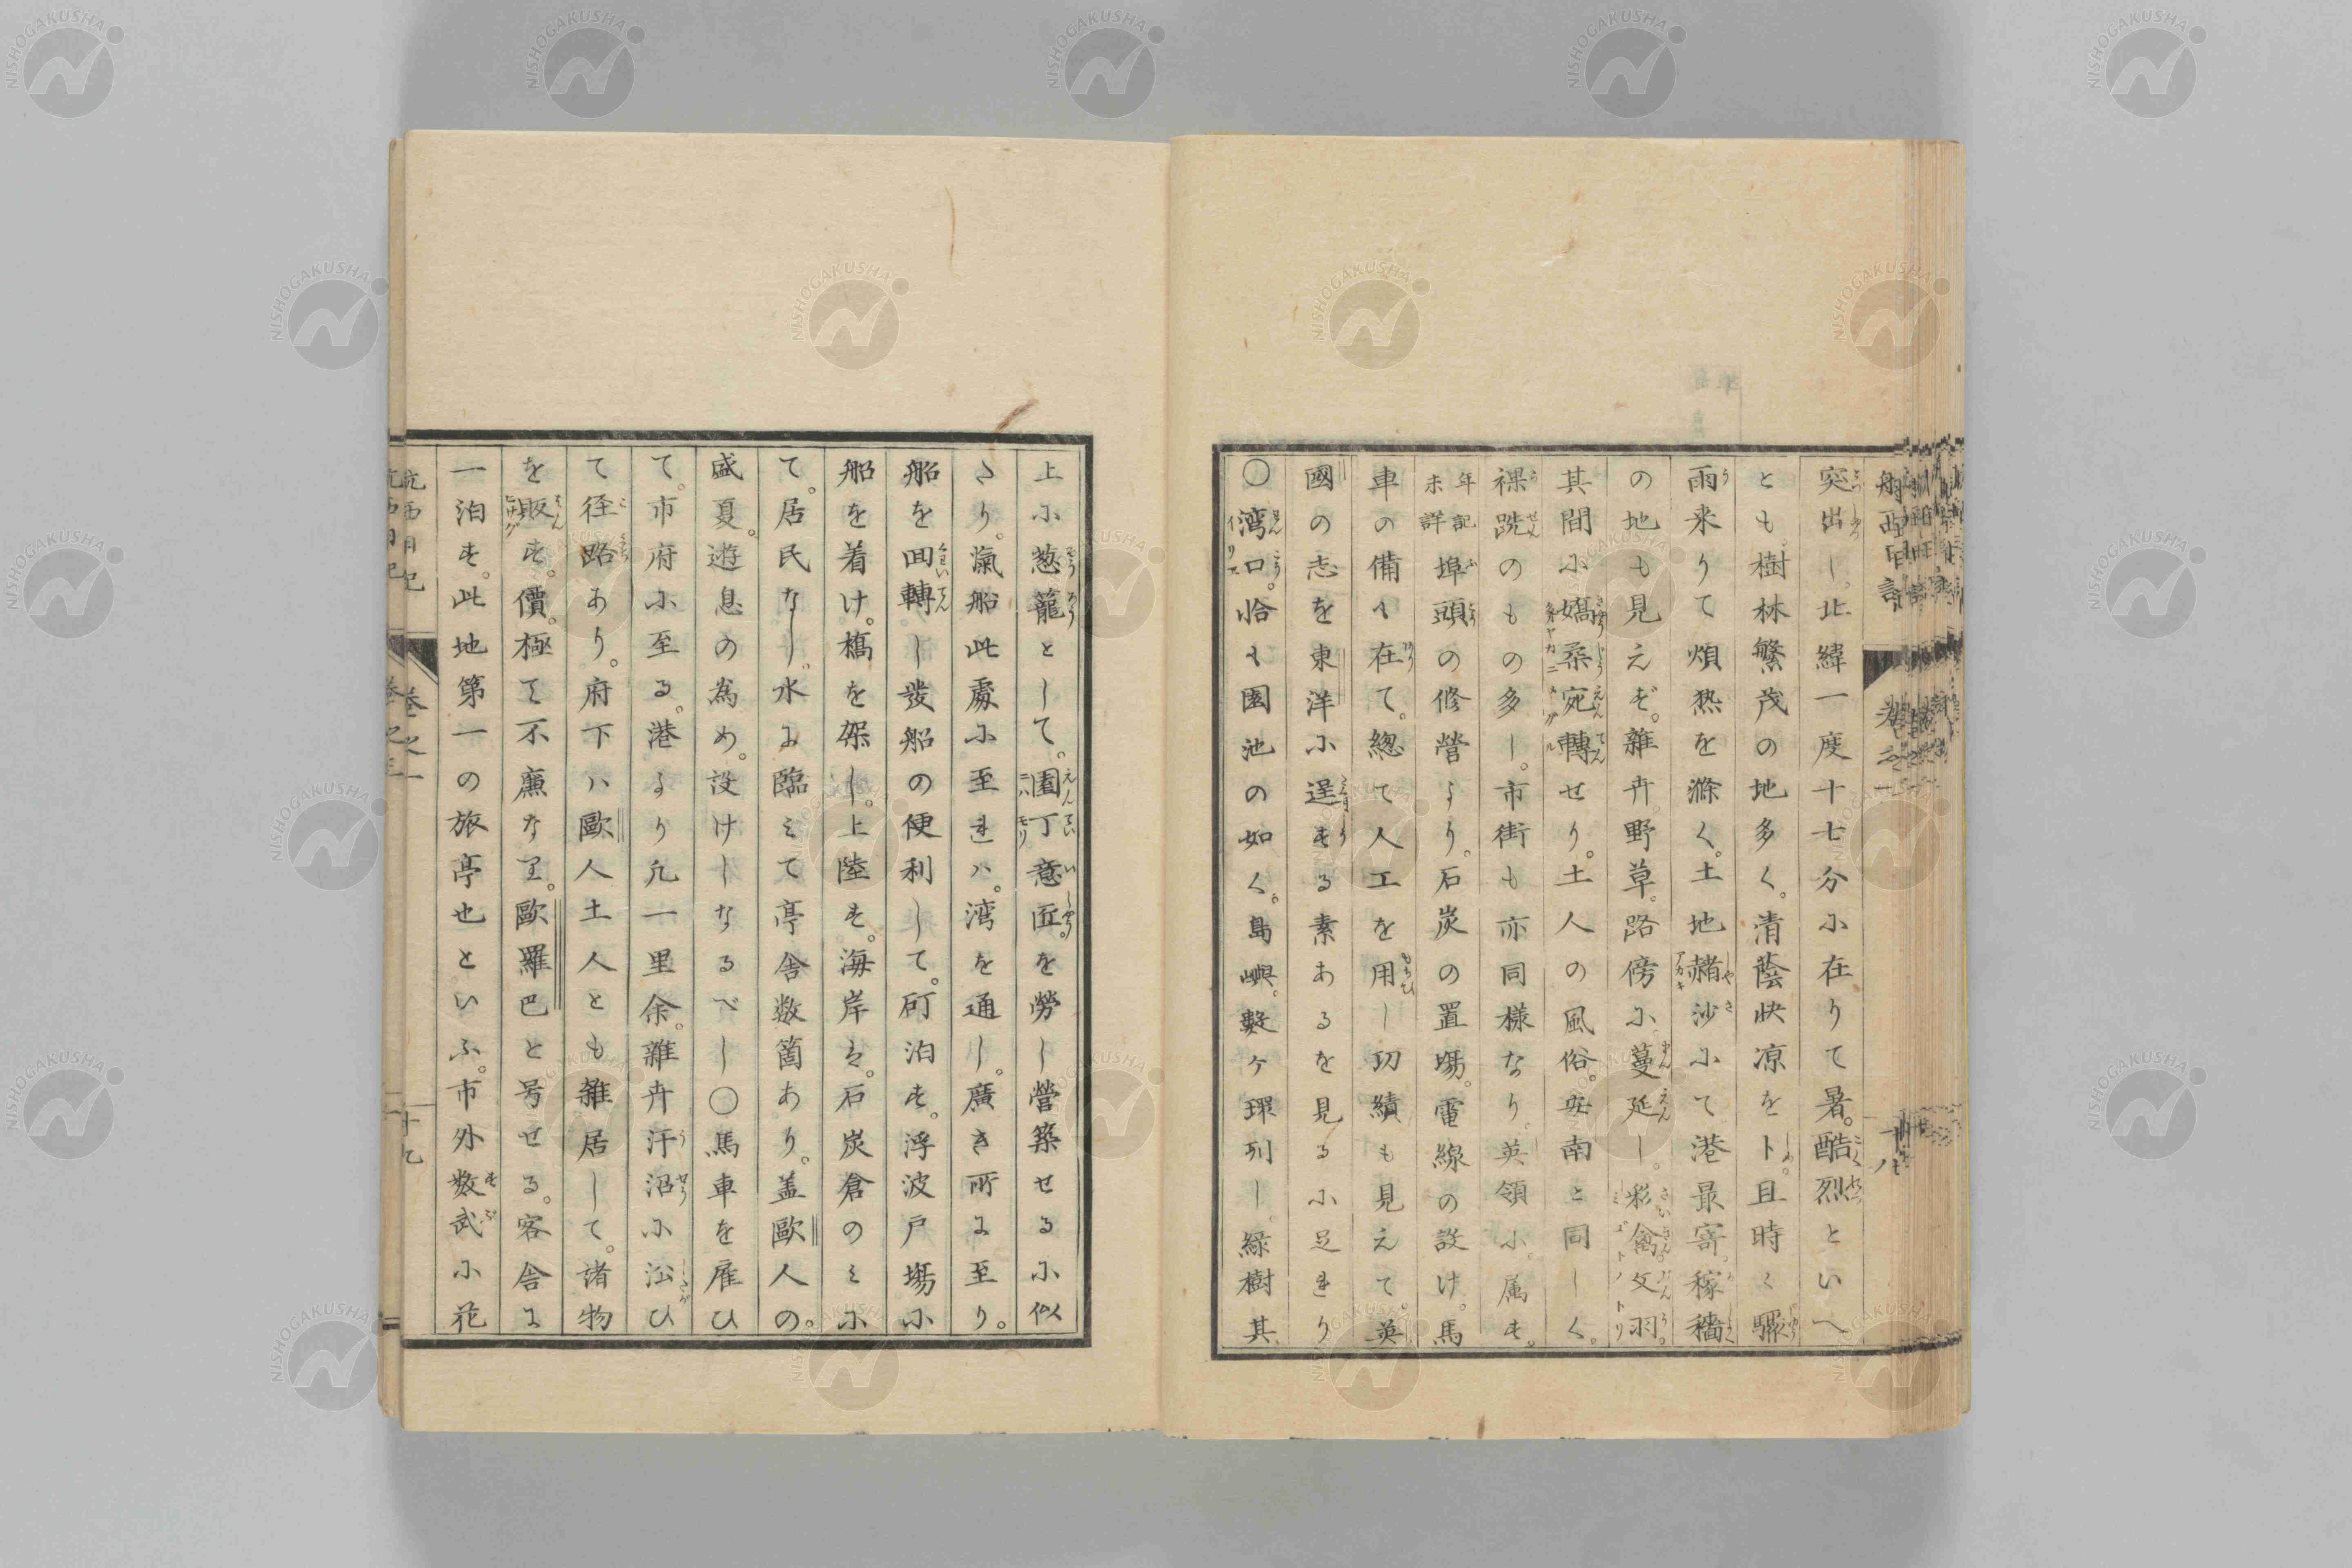 航西日記
巻之一
十八
突出し。北緯一度十七分に在りて暑。酷烈といへ
とも。樹林繁茂の地多く。清蔭快凉をトし。且時々驟
雨来りて煩熱を滌く。土地赭沙にて港最寄。稼穡
の地も見えず。雑卉。野草。路傍に蔓延し。彩禽文羽。
其間に嬌柔宛轉せり。土人の風俗。安南と同しく。
裸跣のもの多し。市街も亦同様なり。英領に。属す。
年記未詳埠頭の修營より。石炭の置場。電線の設け。馬
車の備へ在て。緫て人工を用し功績も見えて。英
國の志を東洋に逞する素あるを見るに足れり
〇湾口。恰も園池の如く。島嶼。數ヶ環列し。緑樹其
上に葱籠として。園丁意匠。を勞し營築せるに似
たり。滊船此處に至れハ。湾を通し。廣き所に至り。
船を回轉し發船の便利して。碇泊す。浮波戸場に
船を着け。橋を架し。上陸す。海岸は。石炭倉のミに
て。居民なし。水に臨ミて亭舎数箇あり。盖歐人の。
盛夏。遊息の為め。設けしなるべし〇馬車を雇ひ
て。市府に至る。港より凢一里余。雑卉汙沼に沿ひ
て径路あり。府下ハ歐人土人とも雑居して。諸物
を販す。價。極て不廉なり。歐羅巴と号せる。客舎に
一泊す。此地第一の旅亭也といふ。市外数武に花
航西日記
巻之一
十九
NISHOGAKUSHA